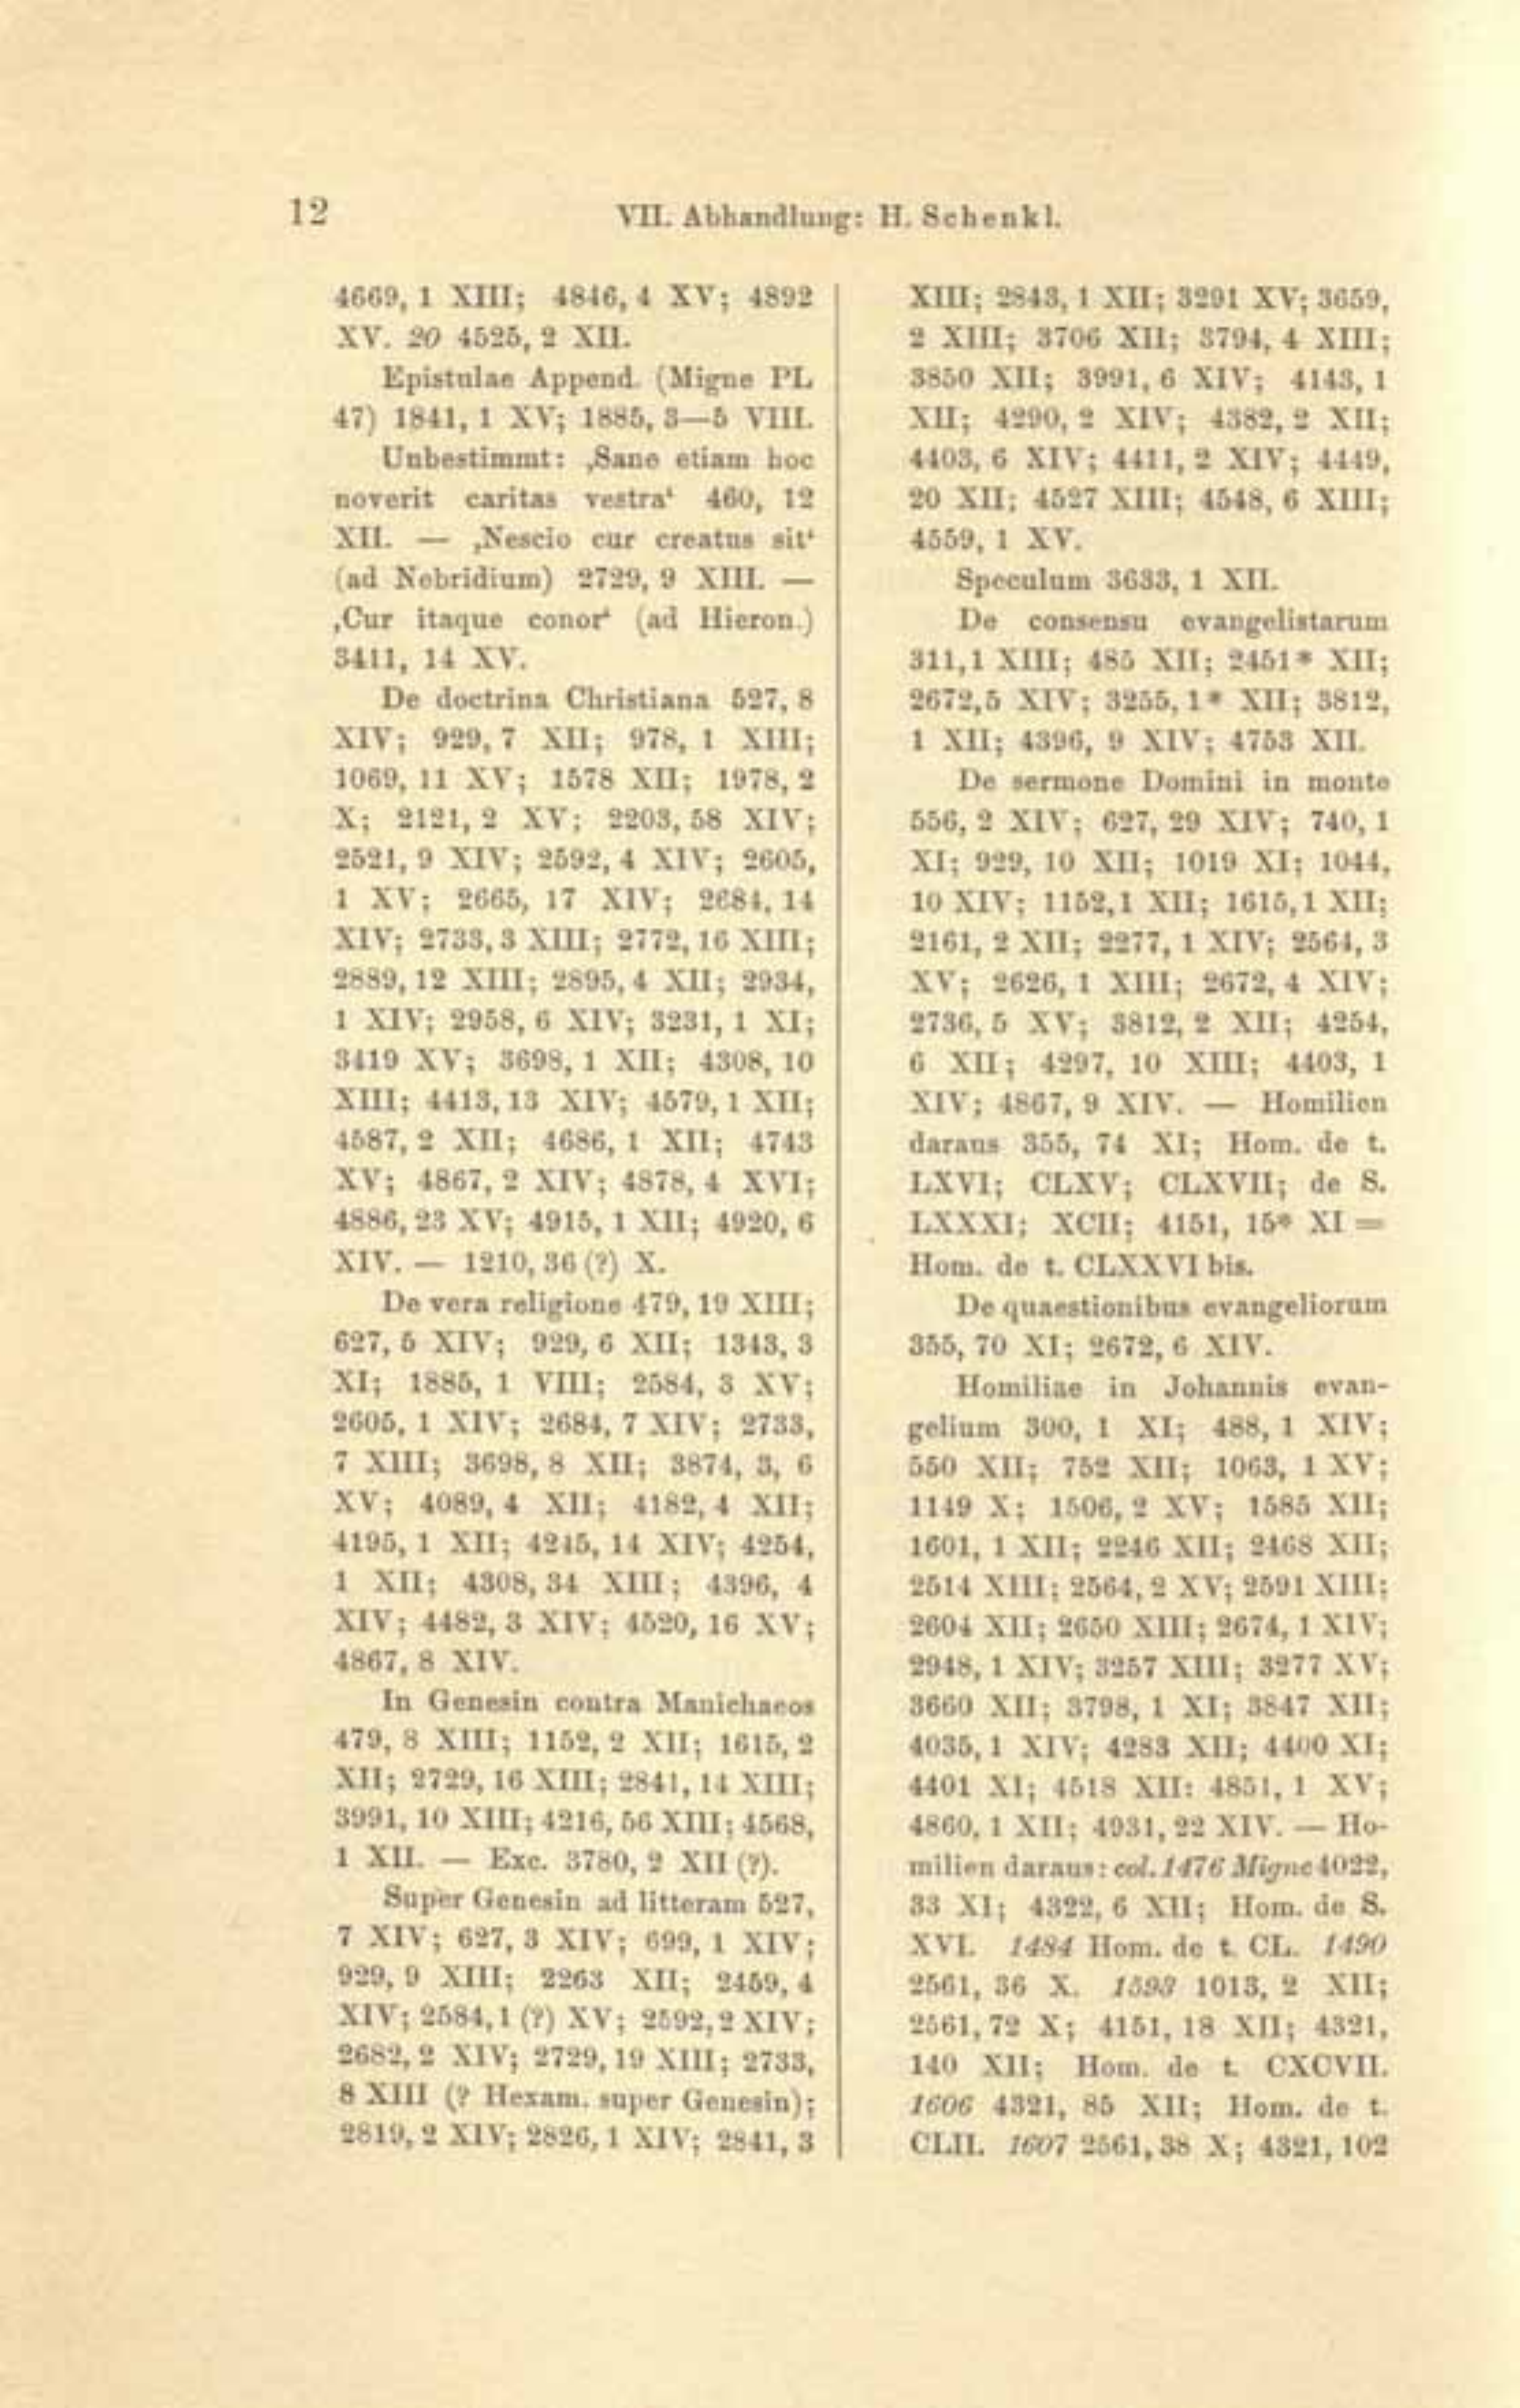 12
VII. Abhandlung: H. Schenkl.
4669, 1 XIII; 4846, 4 XV; 4892
XV. 20 4525, 2 XII.
Epistulae Append. (Migne PL
47) 1841, 1 XV; 1885, 3—5 VIII.
Unbestimmt: ‚Sane etiam hoc
noverit caritas vestra‘ 460, 12
XII. — ‚Nescio cur creatus sit‘
(ad Nebridium) 2729, 9 XIII. —
‚Cur itaque conor‘ (ad Hieron.)
3411, 14 XV.
De doctrina Christiana 527, 8
XIV; 929, 7 XII; 978, 1 XIII;
1069, 11 XV; 1578 XII; 1978, 2
X; 2121, 2 XV; 2203, 58 XIV;
2521, 9 XIV; 2592, 4 XIV; 2605,
1 XV; 2665, 17 XIV; 2684, 14
XIV; 2733, 3 XIII; 2772, 16 XIII;
2889, 12 XIII; 2895, 4 XII; 2934,
1 XIV; 2958, 6 XIV; 3231, 1 XI;
3419 XV; 3698, 1 XII; 4308, 10
XIII; 4413, 13 XIV; 4579, 1 XII;
4587, 2 XII; 4686, 1 XII; 4743
XV; 4867, 2 XIV; 4878, 4 XVI;
4886, 23 XV; 4915, 1 XII; 4920, 6
XIV. — 1210, 36 (?) X.
De vera religione 479, 19 XIII;
627, 5 XIV; 929, 6 XII; 1343, 3
XI; 1885, 1 VIII; 2584, 3 XV;
2605, 1 XIV; 2684, 7 XIV; 2733,
7 XIII; 3698, 8 XII; 3874, 3, 6
XV; 4089, 4 XII; 4182, 4 XII;
4195, 1 XII; 4245, 14 XIV; 4254,
1 XII; 4308, 34 XIII; 4396, 4
XIV; 4482, 3 XIV; 4520, 16 XV;
4867, 8 XIV.
In Genesin contra Manichaeos
479, 8 XIII; 1152, 2 XII; 1615, 2
XII; 2729, 16 XIII; 2841, 14 XIII;
3991, 10 XIII; 4216, 56 XIII; 4568,
1 XII. — Exc. 3780, 2 XII (?).
Super Genesin ad litteram 527,
7 XIV; 627, 3 XIV; 699, 1 XIV;
929, 9 XIII; 2263 XII; 2459, 4
XIV; 2584, 1 (?) XV; 2592, 2 XIV;
2682, 2 XIV; 2729, 19 XIII; 2733,
8 XIII (? Hexam. super Genesin);
2819, 2 XIV; 2826, 1 XIV; 2841, 3
XIII; 2843, 1 XII; 3291 XV; 3659,
2 XIII; 3706 XII; 3794, 4 XIII;
3850 XII; 3991, 6 XIV; 4143, 1
XII; 4290, 2 XIV; 4382, 2 XII;
4403, 6 XIV; 4411, 2 XIV; 4449,
20 XII; 4527 XIII; 4548, 6 XIII;
4559, 1 XV.
Speculum 3633, 1 XII.
De consensu evangelistarum
311, 1 XIII; 485 XII; 2451* XII;
2672, 5 XIV; 3255, 1* XII; 3812,
1 XII; 4396, 9 XIV; 4753 XII.
De sermone Domini in monte
556, 2 XIV; 627, 29 XIV; 740, 1
XI; 929, 10 XII; 1019 XI; 1044,
10 XIV; 1152, 1 XII; 1615, 1 XII;
2161, 2 XII; 2277, 1 XIV; 2564, 3
XV; 2626, 1 XIII; 2672, 4 XIV;
2736, 5 XV; 3812, 2 XII; 4254,
6 XII; 4297, 10 XIII; 4403, 1
XIV; 4867, 9 XIV. — Homilien
daraus 355, 74 XI; Hom. de t.
LXVI; CLXV; CLXVII; de S.
LXXXI; XCII; 4151, 15* XI =
Hom. de t. CLXXVI bis.
De quaestionibus evangeliorum
355, 70 XI; 2672, 6 XIV.
Homiliae in Johannis evan-
gelium 300, 1 XI; 488, 1 XIV;
550 XII; 752 XII; 1063, 1 XV;
1149 X; 1506, 2 XV; 1585 XII;
1601, 1 XII; 2246 XII; 2468 XII;
2514 XIII; 2564, 2 XV; 2591 XIII;
2604 XII; 2650 XIII; 2674, 1 XIV;
2948, 1 XIV; 3257 XIII; 3277 XV;
3660 XII; 3798, 1 XI; 3847 XII;
4035, 1 XIV; 4283 XII; 4400 XI;
4401 XI; 4518 XII: 4851, 1 XV;
4860, 1 XII; 4931, 22 XIV. — Ho-
milien daraus: col. 1476 Migne 4022,
33 XI; 4322, 6 XII; Hom. de S.
XVI. 1484 Hom. de t. CL. 1490
2561, 36 X. 1593 1013, 2 XII;
2561, 72 X; 4151, 18 XII; 4321,
140 XII; Hom. de t. CXCVII.
1606 4321, 85 XII; Hom. de t.
CLII. 1607 2561, 38 X; 4321, 102